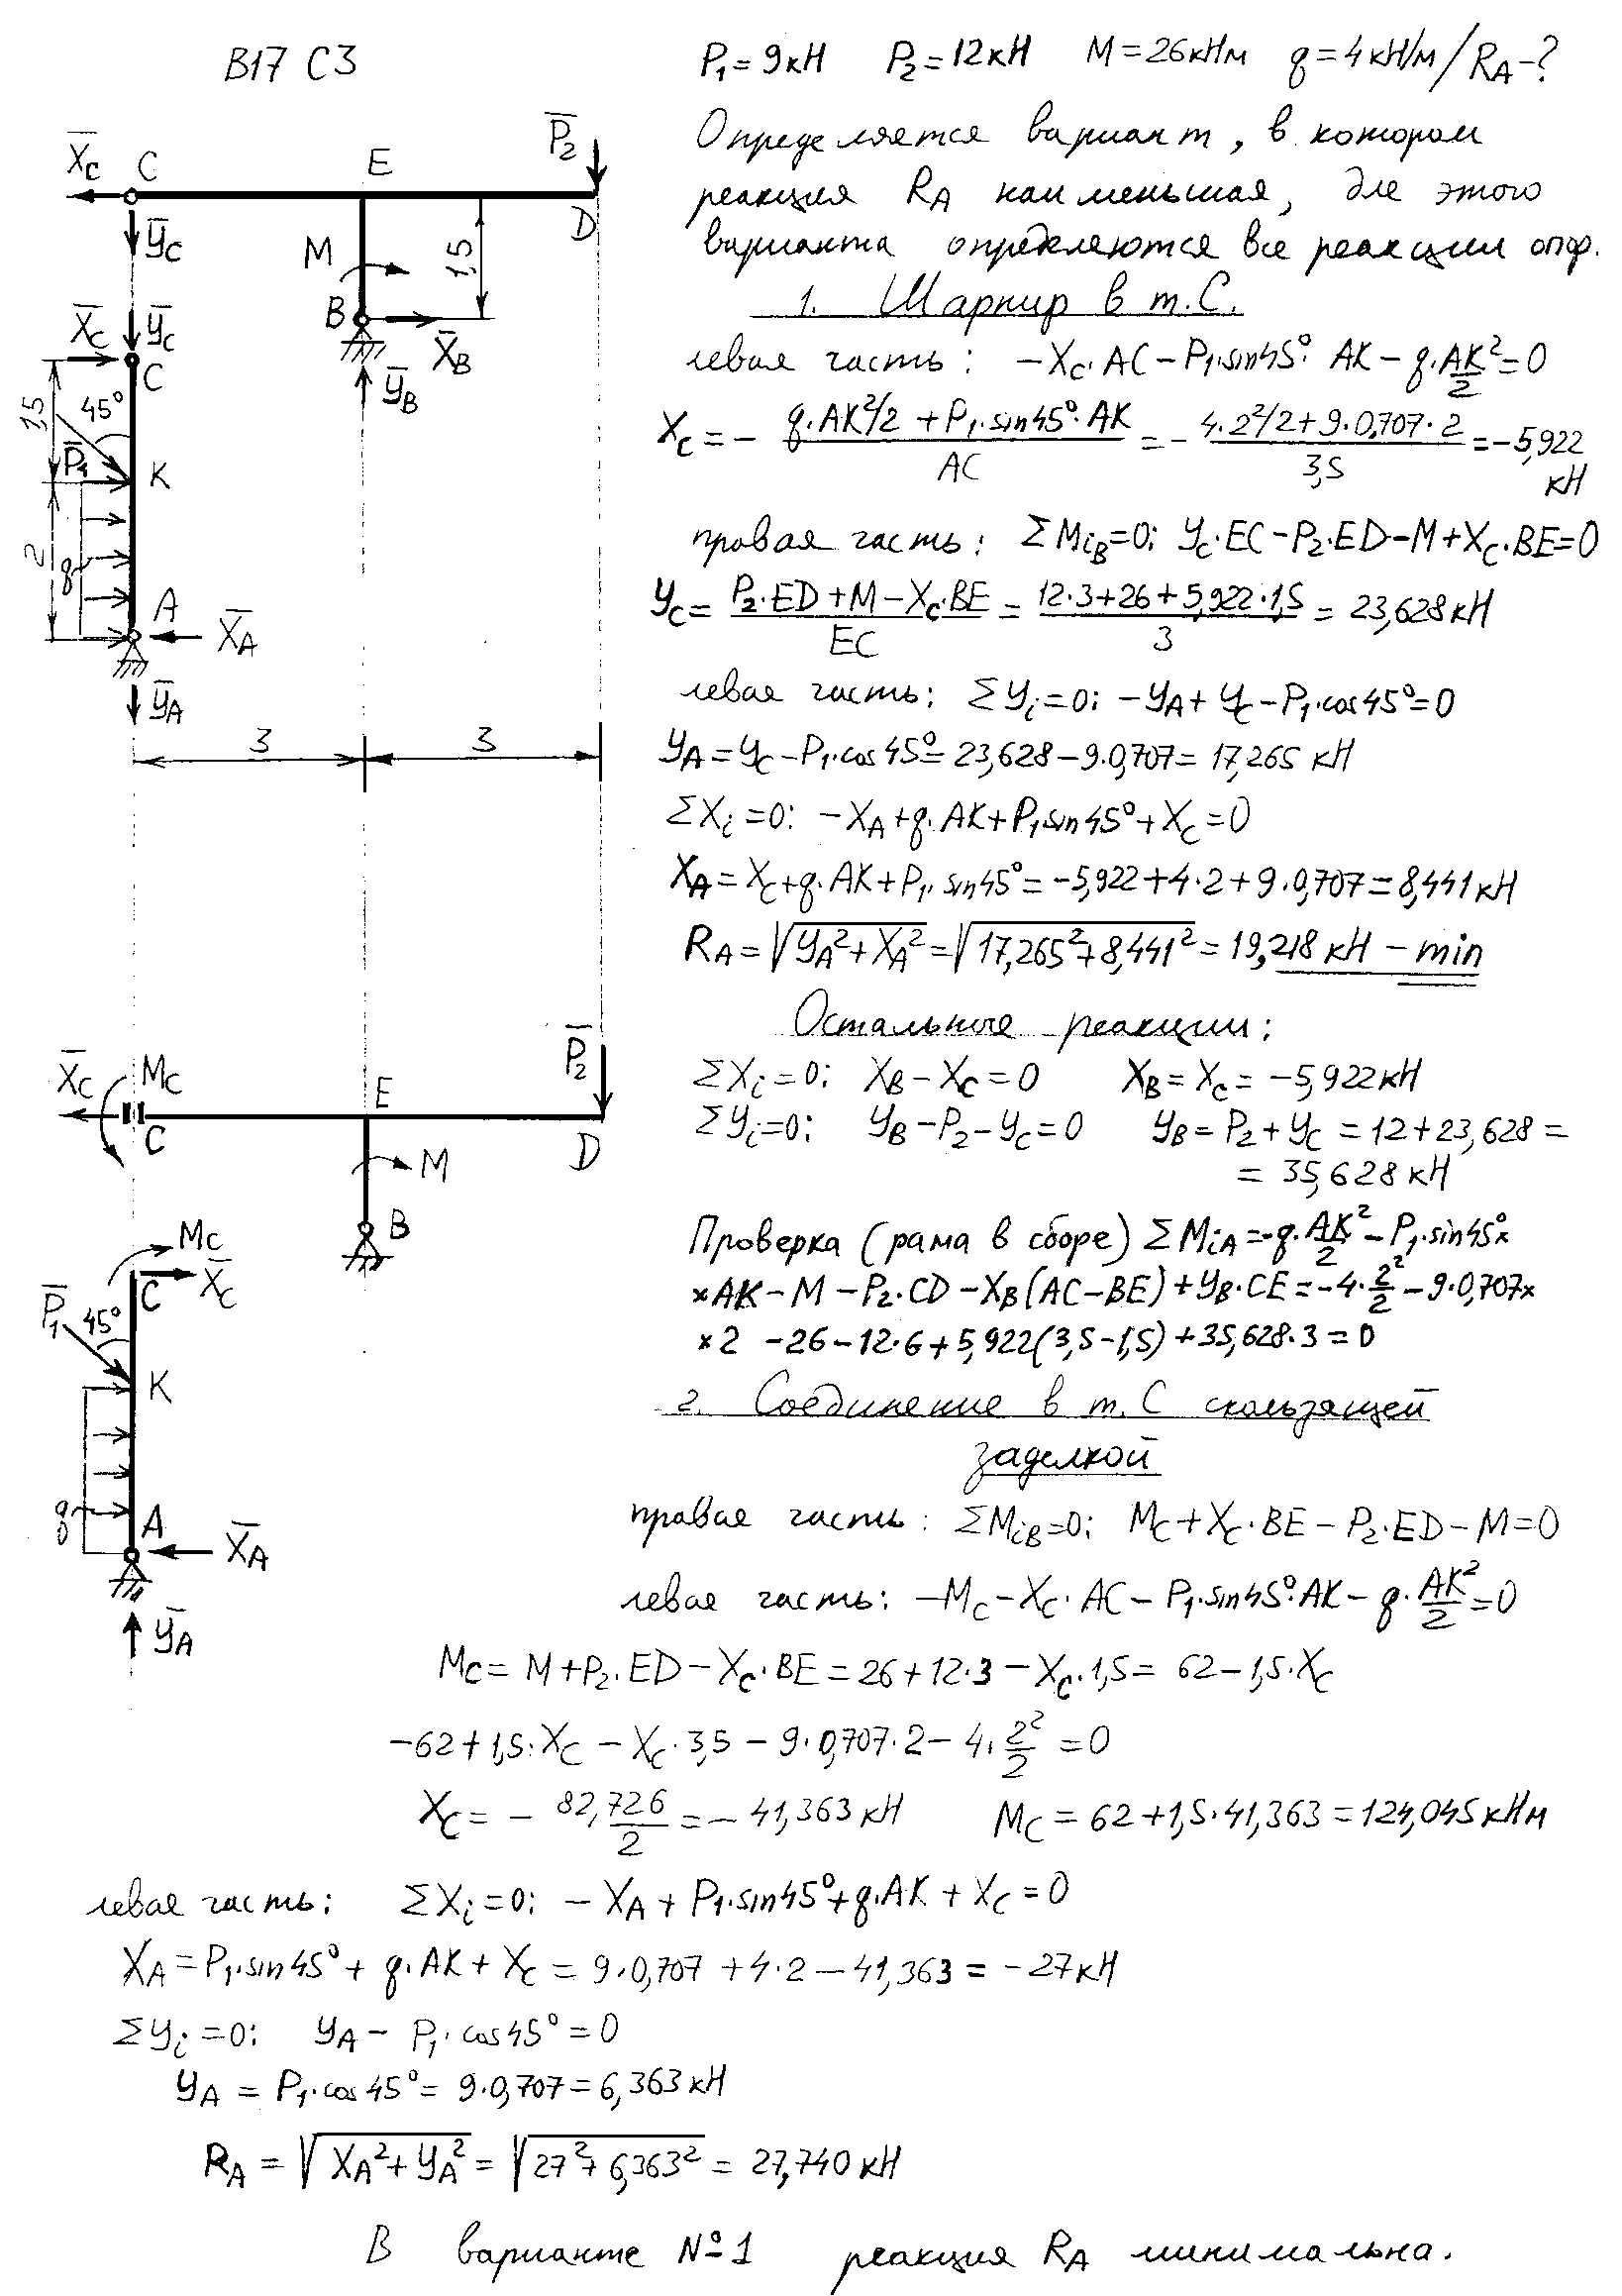 В17 С3
P₁=9кН P₂=12кН M=26кНм q=4кН/м / R_A-?
Определяется вариант, в котором
реакция R_A наименьшая, для этого
варианта определяются все реакции опор.
1. Шарнир в т.С.
левая часть: -X_C·AC-P₁·sin45°·AK-q·AK²/2=0
X_C=-(q·AK²/2+P₁·sin45°·AK)/AC=-(4·2²/2+9·0,707·2)/3,5=-5,922
кН
правая часть: ΣM_iB=0; Y_C·EC-P₂·ED-M+X_C·BE=0
Y_C=(P₂·ED+M-X_C·BE)/EC=(12·3+26+5,922·1,5)/3=23,628кН
левая часть: ΣY_i=0: -Y_A+Y_C-P₁·cos45°=0
Y_A=Y_C-P₁·cos45°=23,628-9·0,707=17,265 кН
ΣX_i=0: -X_A+q·AK+P₁sin45°+X_C=0
X_A=X_C+q·AK+P₁·sin45°=-5,922+4·2+9·0,707=8,441кН
R_A=√(Y_A²+X_A²)=√(17,265²+8,441²)=19,218 кН – min
Остальные реакции:
ΣX_i=0; X_B-X_C=0 X_B=X_C=-5,922кН
ΣY_i=0; Y_B-P₂-Y_C=0 Y_B=P₂+Y_C=12+23,628=
=35,628кН
Проверка (рама в сборе) ΣM_iA=-q·AK²/2-P₁·sin45°×
×AK-M-P₂·CD-X_B(AC-BE)+Y_B·CE=-4·2²/2-9·0,707×
×2 -26-12·6+5,922(3,5-1,5)+35,628·3=0
2. Соединение в т.С скользящей
заделкой
правая часть: ΣM_iB=0; M_C+X_C·BE-P₂·ED-M=0
левая часть: -M_C-X_C·AC-P₁·sin45°·AK-q·AK²/2=0
M_C=M+P₂·ED-X_C·BE=26+12·3-X_C·1,5=62-1,5·X_C
-62+1,5·X_C-X_C·3,5-9·0,707·2-4·2²/2=0
X_C=-82,726/2=-41,363кН M_C=62+1,5·41,363=124,045кНм
левая часть: ΣX_i=0: -X_A+P₁·sin45°+q·AK+X_C=0
X_A=P₁·sin45°+q·AK+X_C=9·0,707+4·2-41,363=-27кН
ΣY_i=0: Y_A-P₁·cos45°=0
Y_A=P₁·cos45°=9·0,707=6,363кН
R_A=√(X_A²+Y_A²)=√(27²+6,363²)=27,740кН
В варианте №1 реакция R_A минимальна.
X_C C E P₂
Y_C D
M 1,5
B
X_C Y_C X_B
C Y_B
1,5 45°
P₁ K
2 q
A
X_A
Y_A
3 3
P₂
X_C M_C E
C D
M
B
M_C
X_C
P₁ 45° C
K
q A
X_A
Y_A